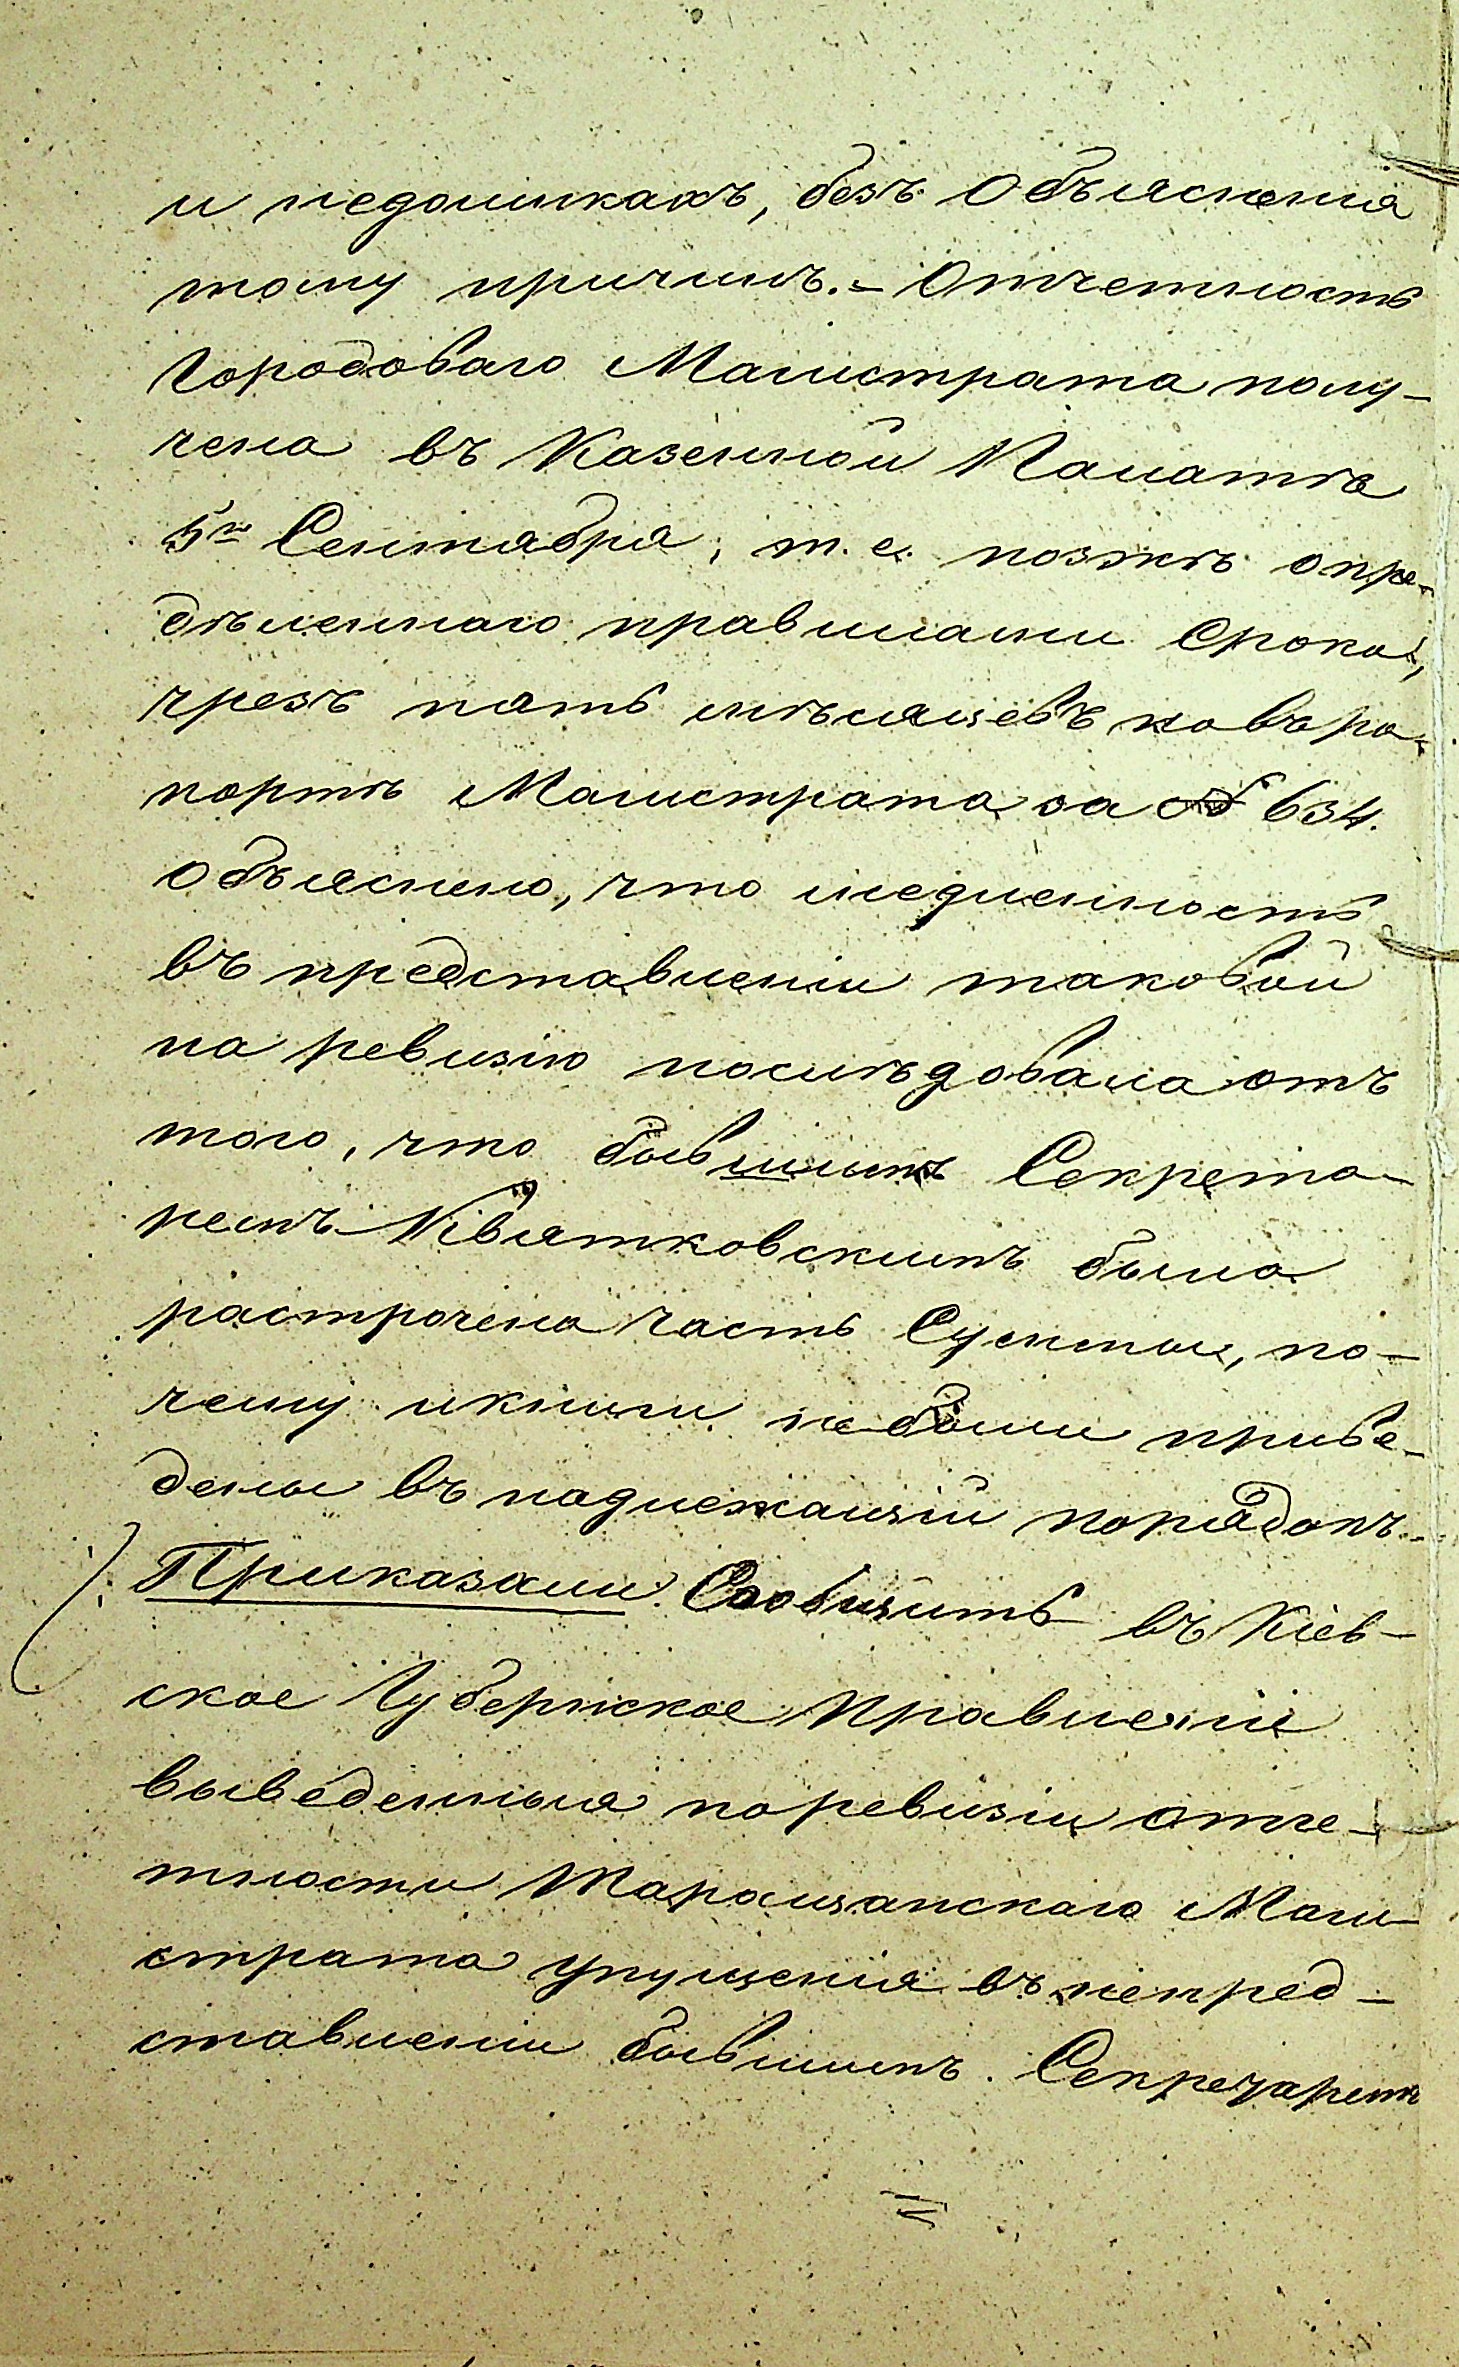 и недоимкахъ, безъ Объясненія
тому причинъ. – Отчетность
Городоваго Магистрата полу-
чена въ Казенной Палатѣ
5го Сентября, т. е. позжѣ опре-
дѣленнаго правилами Срока,
чрезъ пять мѣсяцевъ ковъ ра-
портѣ Магистрата за № 634.
Объяснено, что медленность
въ представленіи таковой
на ревизію послѣдовала отъ
того, что бывшимъ Секрета-
ремъ Квятковскимъ была
растрочена часть Суммы, по-
чему икниги не были приве-
дены въ надлежащій порядокъ. –
Приказали: Сообщить въ Кіев-
ское Губернское Правленіе
выведенныя поревизіи отче-
тности Таращанскаго Маги-
страта упущенія въ непред-
ставленіи бывшимъ Секретаремъ